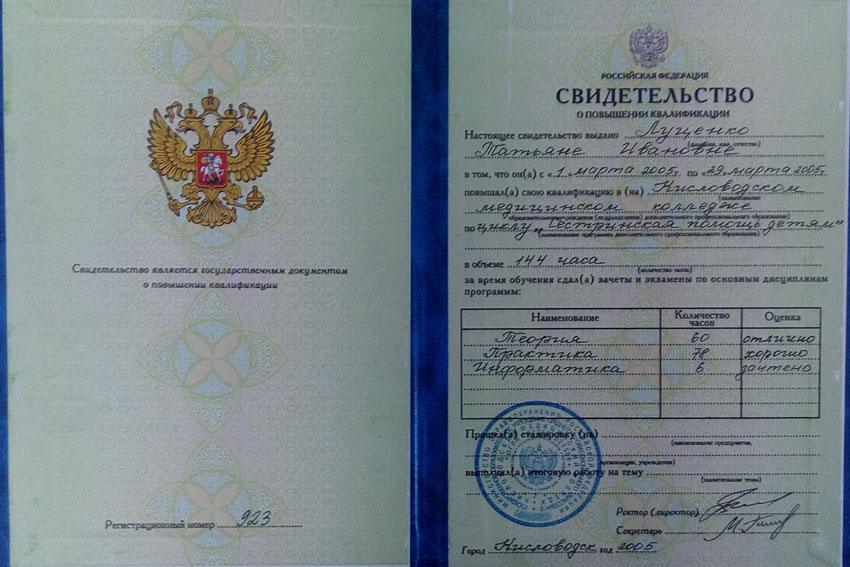 Свидетельство является государственным документом
о повышении квалификации
Регистрационный номер 923
РОССИЙСКАЯ ФЕДЕРАЦИЯ
СВИДЕТЕЛЬСТВО
О ПОВЫШЕНИИ КВАЛИФИКАЦИИ
Настоящее свидетельство выдано Луценко
(фамилия, имя, отчество)
Татьяне Ивановне
в том, что он(а) с «1» марта 2005г. по «29» марта 2005г.
повышал(а) свою квалификацию в (на) Кисловодском
(наименование)
медицинском колледже
образовательного учреждения (подразделения) дополнительного профессионального образования)
по циклу „Сестринская помощь детям"
(наименование программы дополнительного профессионального образования)
в объеме 144 часа
(количество часов)
за время обучения сдал(а) зачеты и экзамены по основным дисциплинам
программы:
Наименование Количество часов Оценка
Теория 60 отлично
Практика 78 хорошо
Информатика 6 зачтено
Прошел(а) стажировку (на)
(наименование предприятия,
организации, учреждения)
выполнил(а) итоговую работу на тему
(наименование темы)
Ректор (директор)
Секретарь
Город Кисловодск год 2005